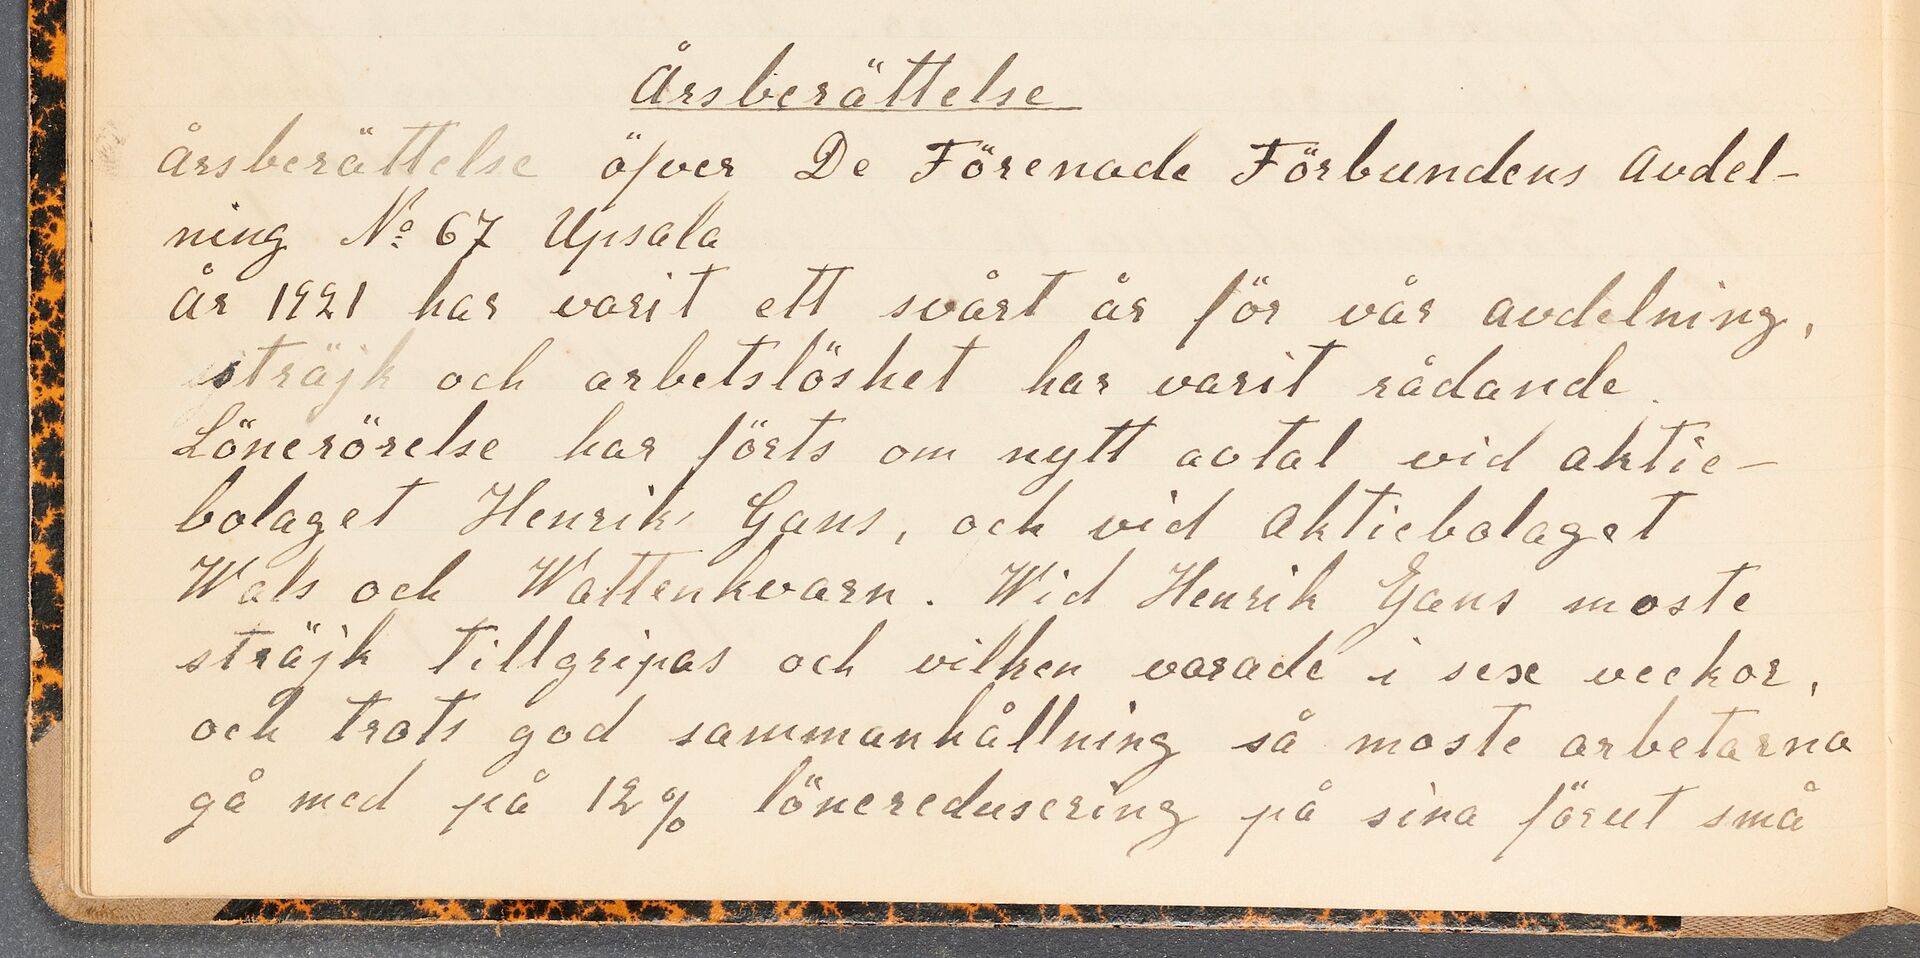 Årsberättelse
Årsberättelse öfver De Förenade Förbundens Avdel-
ning No 67 Upsala
År 1921 har varit ett svårt år för vår avdelning,
sträjk och arbetslöshet har varit rådande.
Lönerörelse har förts om nytt avtal vid aktie-
bolaget Henrik Gans, och vid aktiebolaget
Wals och Wattenkvarn. Wid Henrik Gans moste
sträjk tillgripas och vilken varade i sex veckor,
och trots god sammanhållning så moste arbetarna
gå med på 12% löneredusering på sina förut små